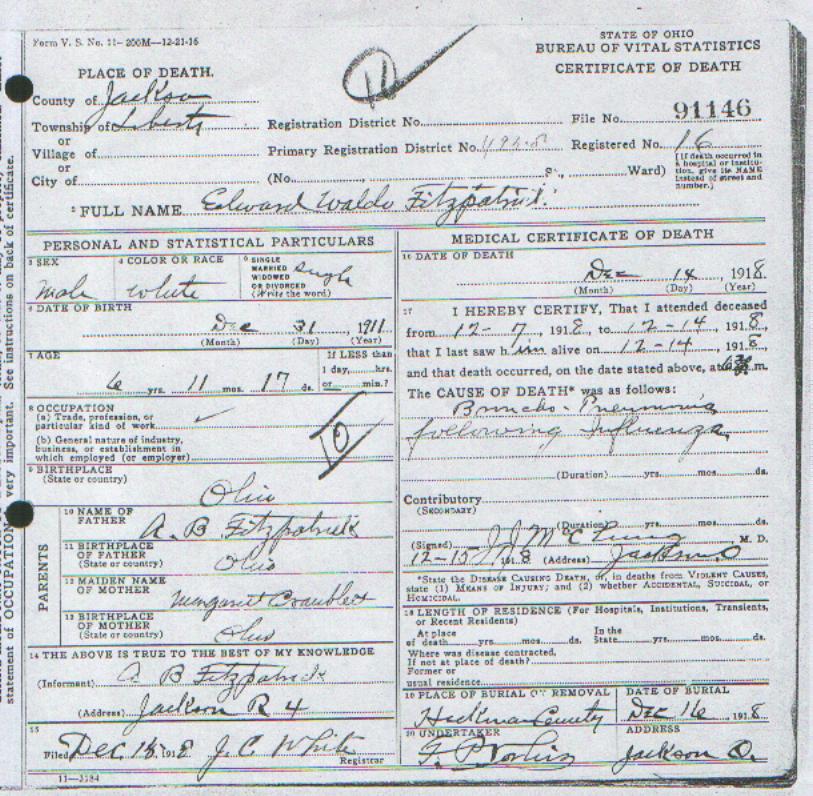 Form V. S. No. 11-200M-12-21-16
STATE OF OHIO
BUREAU OF VITAL STATISTICS
CERTIFICATE OF DEATH
PLACE OF DEATH.
County of Jackson
Township of Liberty
or
Village of
or
City of
Registration District No. File No. 91146
Primary Registration District No. Registered No. 16
(No. , S., Ward)
[If death occurred in
a hospital or institu-
tion, give its NAME
instead of street and
number.]
2 FULL NAME Edward Waldo Fitzpatrick
PERSONAL AND STATISTICAL PARTICULARS
3 SEX
Male
4 COLOR OR RACE
White
5 SINGLE
MARRIED
WIDOWED
OR DIVORCED
(Write the word)
Single
6 DATE OF BIRTH
Dec 31, 1911
(Month) (Day) (Year)
7 AGE
6 yrs. 11 mos. 17 ds.
If LESS than
1 day, hrs.
or min.?
8 OCCUPATION
(a) Trade, profession, or
particular kind of work
(b) General nature of industry,
business, or establishment in
which employed (or employer)
10
9 BIRTHPLACE
(State or country)
Ohio
PARENTS
10 NAME OF
FATHER
A. B. Fitzpatrick
11 BIRTHPLACE
OF FATHER
(State or country)
Ohio
12 MAIDEN NAME
OF MOTHER
Margaret
13 BIRTHPLACE
OF MOTHER
(State or country)
Ohio
14 THE ABOVE IS TRUE TO THE BEST OF MY KNOWLEDGE
(Informant) A B Fitzpatrick
(Address) Jackson R 4
15
Filed Dec 15, 1918 J. C. White
Registrar
11-3184
MEDICAL CERTIFICATE OF DEATH
16 DATE OF DEATH
Dec 14, 1918
(Month) (Day) (Year)
17 I HEREBY CERTIFY, That I attended deceased
from 12-7, 1918, to 12-14, 1918,
that I last saw him alive on 12-14, 1918
and that death occurred, on the date stated above, at m.
The CAUSE OF DEATH* was as follows:
Broncho-Pneumonia
following Influenza
(Duration) yrs. mos. ds.
Contributory
(SECONDARY)
(Duration) yrs. mos. ds.
(Signed) M. D.
12-15, 1918 (Address) Jackson O
*State the DISEASE CAUSING DEATH, or, in deaths from VIOLENT CAUSES,
state (1) MEANS OF INJURY; and (2) whether ACCIDENTAL, SUICIDAL, or
HOMICIDAL.
18 LENGTH OF RESIDENCE (For Hospitals, Institutions, Transients,
or Recent Residents)
At place
of death yrs. mos. ds.
In the
State yrs. mos. ds.
Where was disease contracted,
If not at place of death?
Former or
usual residence
19 PLACE OF BURIAL OR REMOVAL
Heckman Cemetery
DATE OF BURIAL
Dec 16, 1918
20 UNDERTAKER
ADDRESS
Jackson O.
very important. See instructions on back of certificate.
statement of OCCUPATION